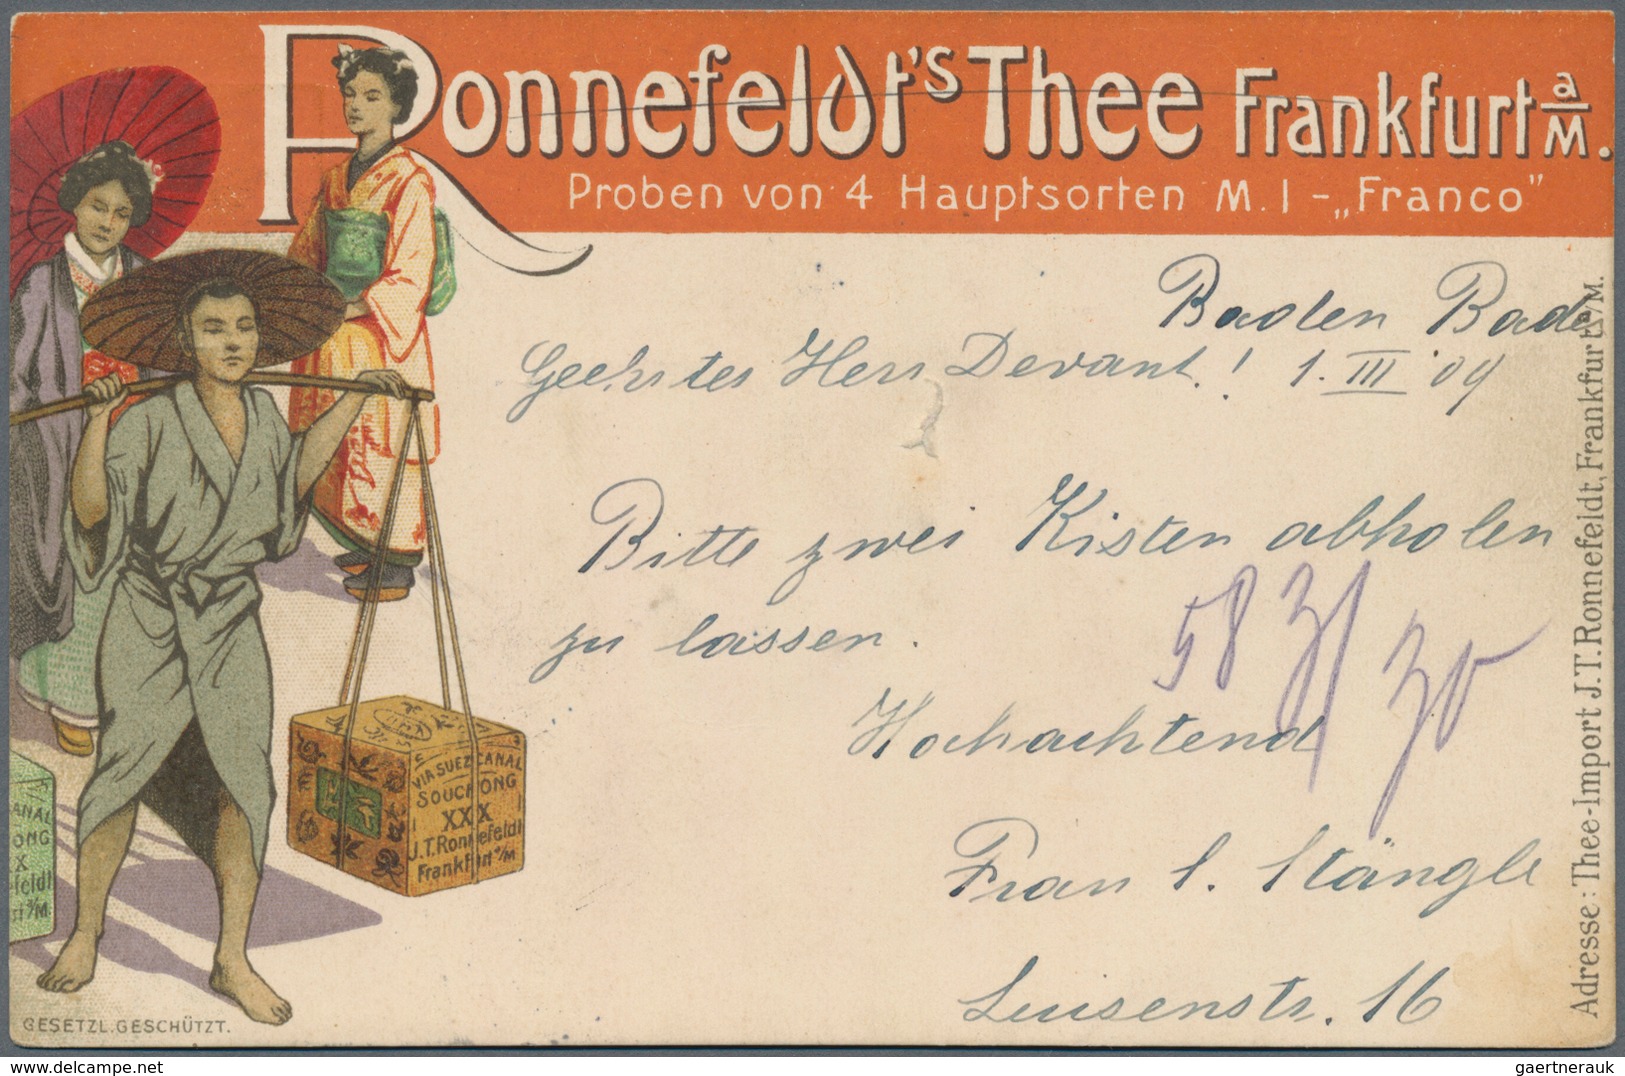 Ronnefeldt's Thee Frankfurt a/M.
Proben von 4 Hauptsorten M. 1 - „Franco"
Baden Bade
Geehrter Herr Devant! 1. III 09
Bitte zwei Kisten abholen
zu lassen.
58 31/ 30
Hochachtend
Frau S. Stängle
Luisenstr. 16
Adresse: Thee-Import J.T. Ronnefeldt, Frankfurt a/M.
VIA SUEZ CANAL
SOUCHONG
XXX
J.T. Ronnefeldt
Frankfurt a/M
ANAL
ONG
X
feldt
a/M.
GESETZL. GESCHÜTZT.
www.delcampe.net
gaertnerauk